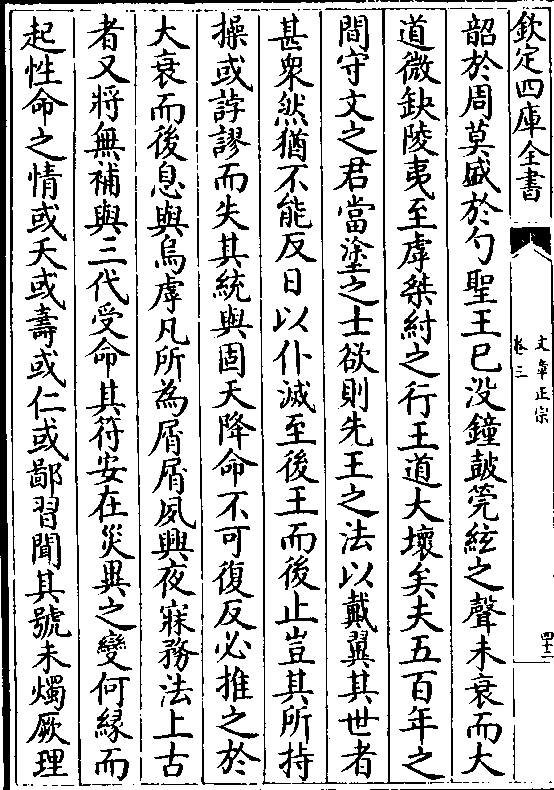 欽定四庫全書
文章正宗
卷三
四十二
韶於周莫盛於勺聖王已没鐘鼓筦絃之聲未衰而大
道微缺陵夷至虖桀紂之行王道大壞矣夫五百年之
間守文之君當塗之士欲則先王之法以戴翼其世者
甚衆然猶不能反日以仆滅至後王而後止豈其所持
操或誖謬而失其統與固天降命不可復反必推之於
大衰而後息與烏虖凡所為屑屑夙興夜寐務法上古
者又將無補與三代受命其符安在災異之變何緣而
起性命之情或夭或壽或仁或鄙習聞其號未燭厥理